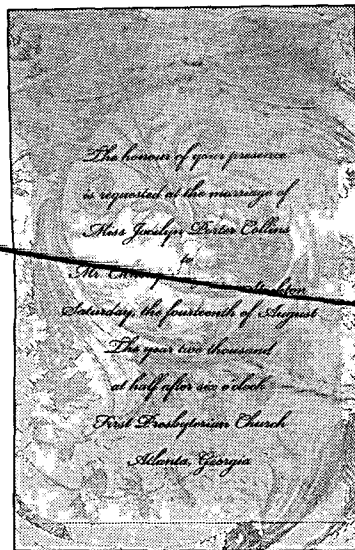 The honour of your presence
is requested at the marriage of
Miss Jocelyn Porter Collins
to
Mr.
Saturday, the fourteenth of August
The year two thousand
at half after six o'clock
First Presbyterian Church
Atlanta, Georgia